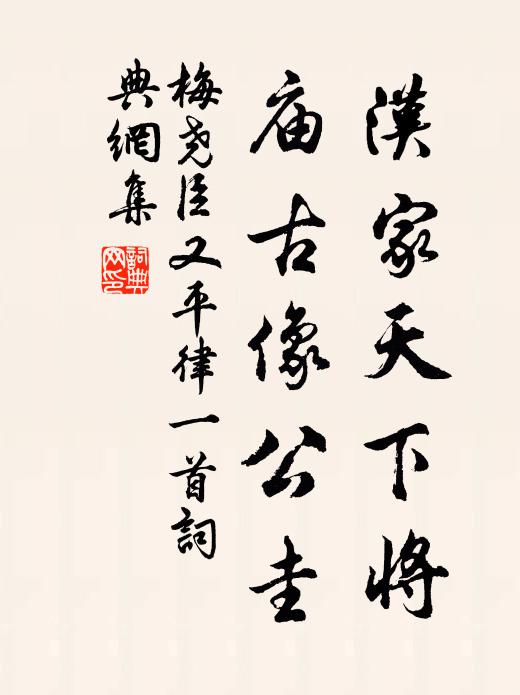 漢家天下將
庙古像公圭
梅尧臣又平律一首詞
典網集
詞典
网印